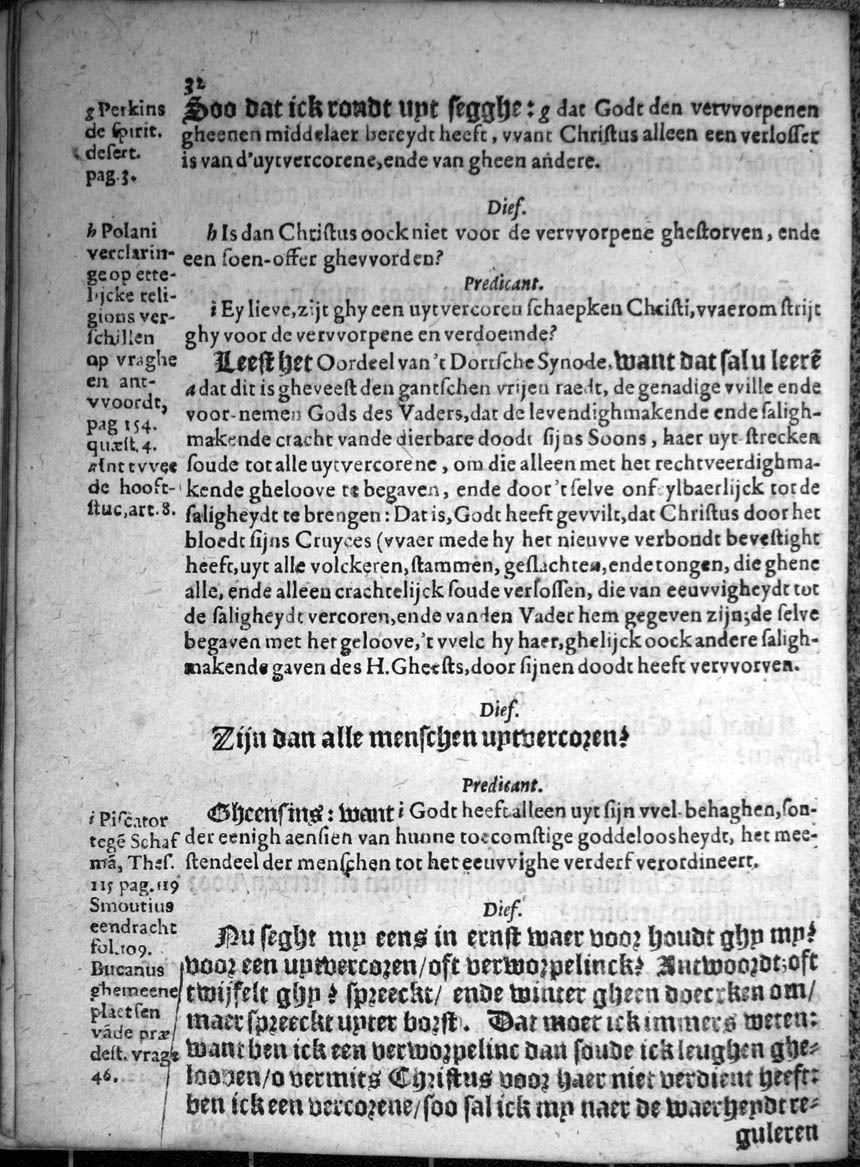 32
g Perkins
de spirit.
desert.
pag.3.
Soo dat ick rondt uyt segghe: g dat Godt den vervvorpenen
gheenen middelaer bereydt heeft, vvant Christus alleen een verlosser
is van d'uytvercorene, ende van gheen andere.
Dief.
h Polani
verclarin-
ge op ette-
lijcke reli-
gions ver-
schillen
op vraghe
en ant-
vvoordt,
pag 154.
quæst. 4.
h Is dan Christus oock niet voor de vervvorpene ghestorven, ende
een soen-offer ghevvorden?
Predicant.
i Ey lieve, zijt ghy een uytvercoren schaepken Christi, vvaerom strijt
ghy voor de vervvorpene en verdoemde?
Leest het Oordeel van't Dortsche Synode, want dat sal u leerē
a Int tvvee
de hooft-
stuc, art. 8.
a dat dit is gheveest den gantschen vrijen raedt, de genadige vville ende
voor-nemen Gods des Vaders, dat de levendighmakende ende saligh-
makende cracht vande dierbare doodt sijns Soons, haer uyt strecken
soude tot alle uytvercorene, om die alleen met het rechtveerdighma-
kende gheloove te begaven, ende door't selve onfeylbaerlijck tot de
saligheydt te brengen: Dat is, Godt heeft gevvilt, dat Christus door het
bloedt sijns Cruyces (vvaer mede hy het nieuvve verbondt bevestight
heeft, uyt alle volckeren, stammen, geslachten, ende tongen, die ghene
alle, ende alleen crachtelijck soude verlossen, die van eeuvvigheydt tot
de saligheydt vercoren, ende van den Vader hem gegeven zijn; de selve
begaven met het geloove, 't vvelc hy haer, ghelijck oock andere saligh-
makende gaven des H. Gheests, door sijnen doodt heeft vervvorven.
Dief.
Zijn dan alle menschen uytvercoren?
Predicant.
i Piscator
tegē Schaf
mā, Thes.
115 pag. 119
Smoutius
eendracht
fol. 109.
Bucanus
ghemeene
plaetsen
vāde præ
dest. vrage
46.
Gheensins: want i Godt heeft alleen uyt sijn vvel-behaghen, son-
der eenigh aensien van hunne toecomstige goddeloosheydt, het mee-
stendeel der menschen tot het eeuvvighe verderf verordineert.
Dief.
Nu seght my eens in ernst waer voor houdt ghy my?
voor een uytvercoren/ oft verworpelinck? Antwoordt; oft
twijfelt ghy? spreeckt/ ende winter gheen doecxken om/
maer spreeckt uyter borst. Dat moet ick immers weten:
want ben ick een verworpelinc dan soude ick leughen ghe-
looven/ o vermits Christus voor haer niet verdient heeft:
ben ick een vercorene/ soo sal ick my naer de waerheydt re-
guleren